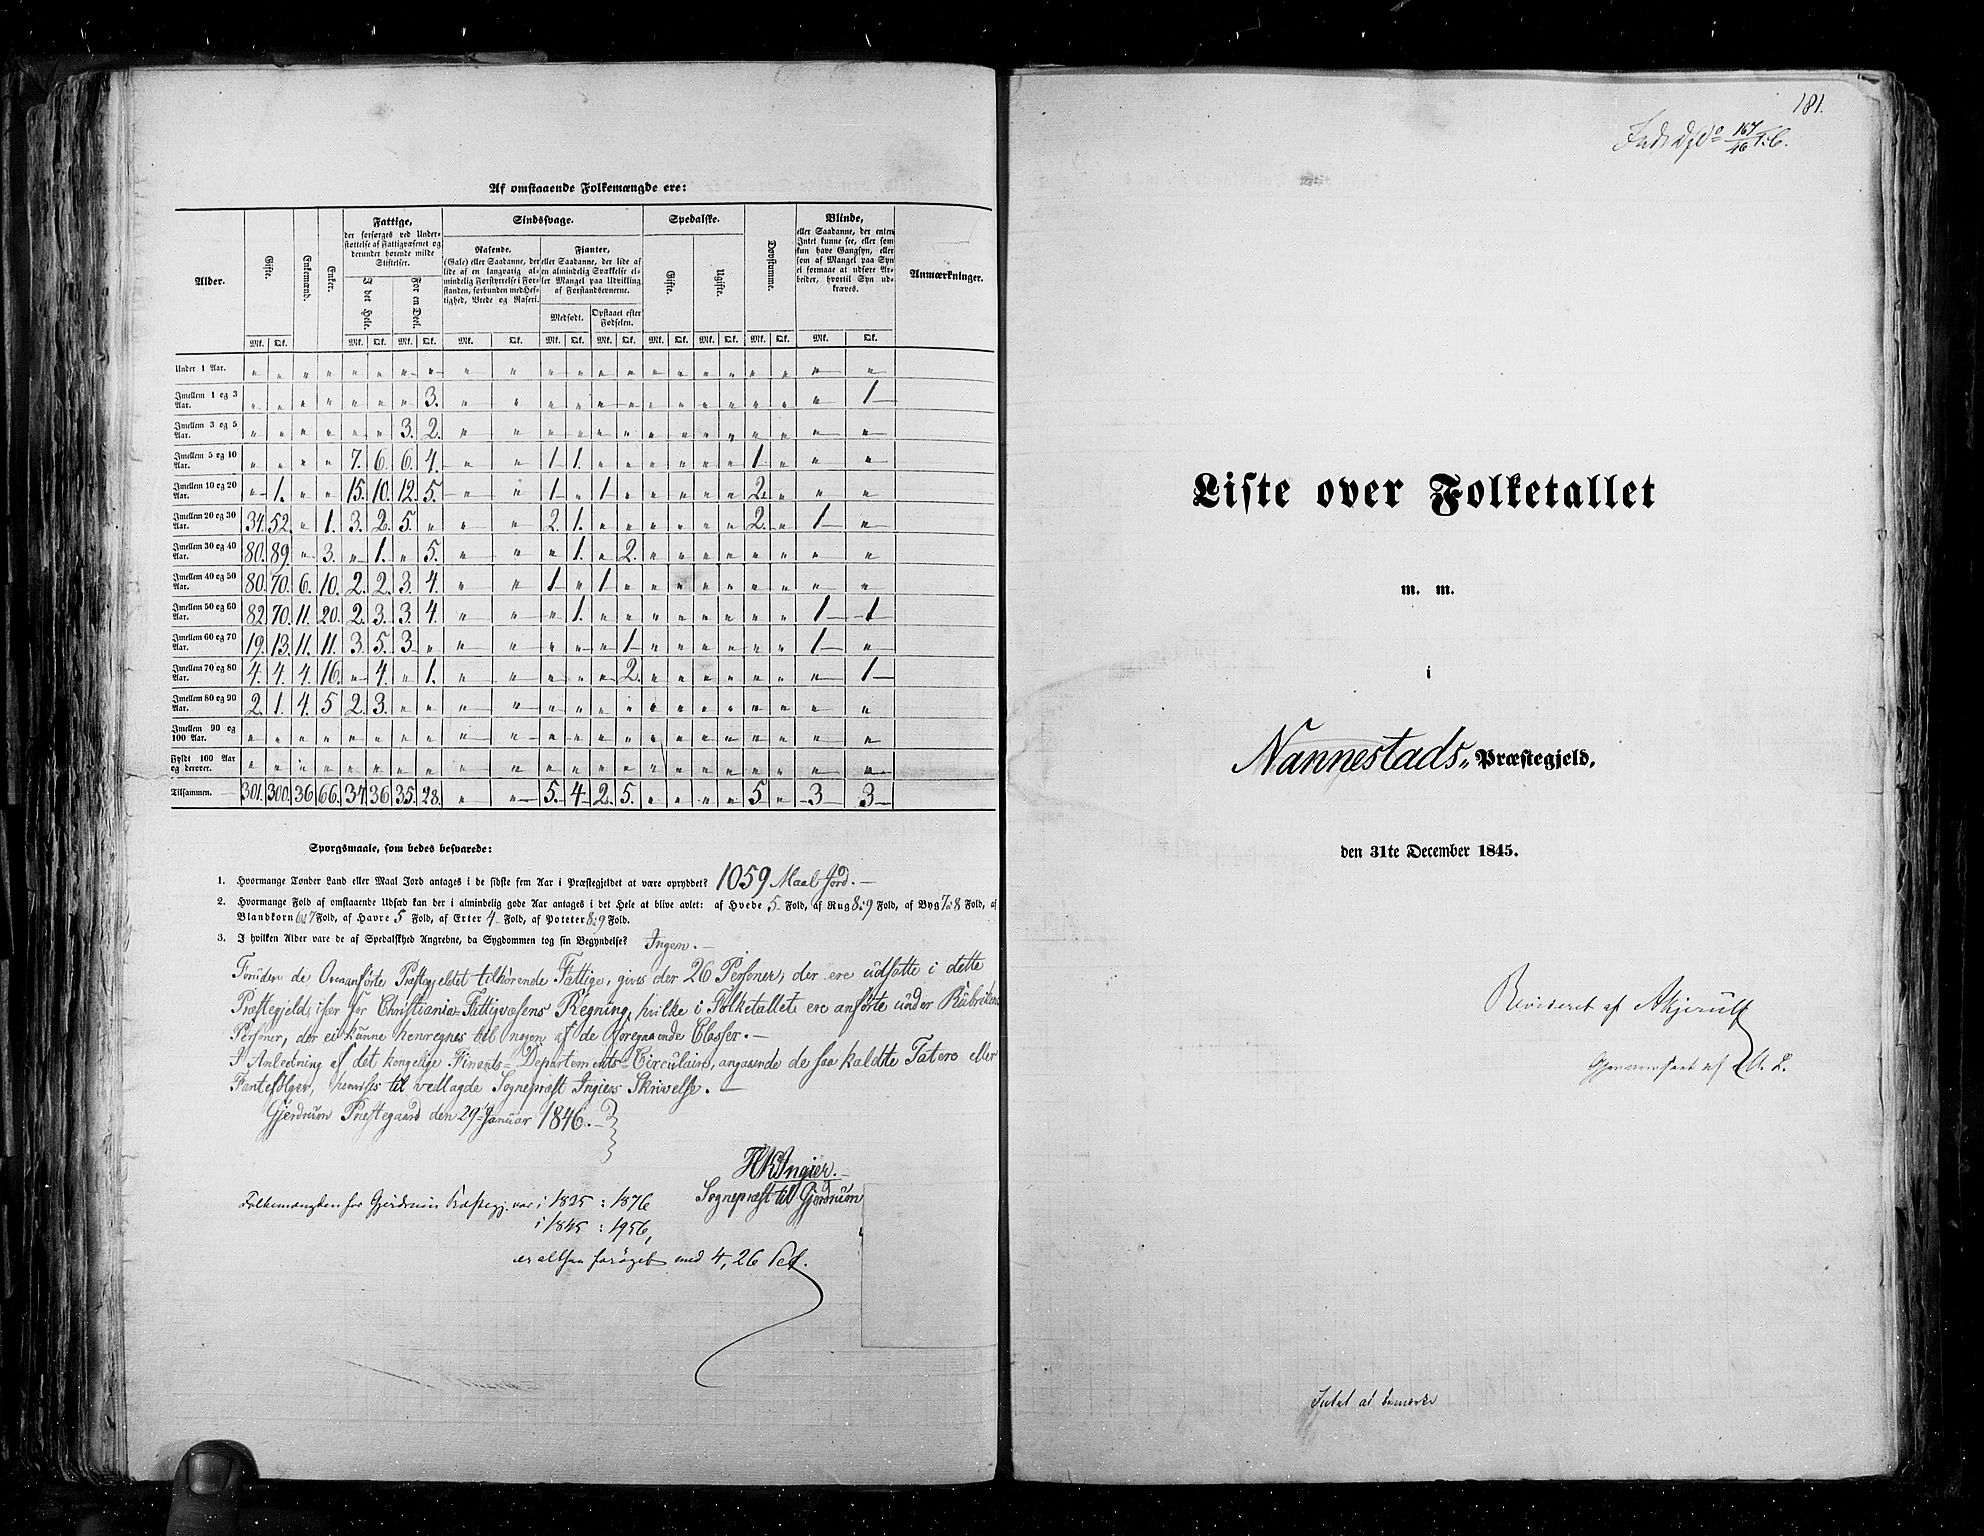 Af omstaaende Folkemængde ere:
Alder. | Gifte. | Enkemænd. | Enker. | Fattige, der forsørges ved Understøttelse af Fattigvæsenet og derunder hørende milde Stiftelser. | Sindssvage. | Spedalske. | Døvstumme. | Blinde, eller Saadanne, der enten Intet kunne see, eller som kun have Gangsyn, eller som af Mangel paa Syn ei formaae at udføre Arbeider, hvortil Syn udkræves. | Anmærkninger.
I det Hele. | For en Deel. | Rasende. (Gale) eller Saadanne, der lide af en langvarig almindelig Forstyrrelse i Forstanden, forbunden med Heftighed, Vrede og Raseri. | Fianter, eller Saadanne, der lide af en almindelig Svækkelse eller Mangel paa Udvikling af Forstandsevnerne. | Gifte. | Ugifte.
Medfødt. | Opstaaet efter Fødselen.
Mk. | Qk. | Mk. | Qk. | Mk. | Qk. | Mk. | Qk. | Mk. | Qk. | Mk. | Qk. | Mk. | Qk. | Mk. | Qk. | Mk. | Qk. | Mk. | Qk.
Under 1 Aar. | " | " | " | " | " | " | " | " | " | " | " | " | " | " | " | " | " | " | " | " | " | "
Imellem 1 og 3 Aar. | " | " | " | " | " | " | " | 3. | " | " | " | " | " | " | " | " | " | " | " | " | " | 1
Imellem 3 og 5 Aar. | " | " | " | " | " | " | 3. | 2. | " | " | " | " | " | " | " | " | " | " | " | " | " | "
Imellem 5 og 10 Aar. | " | " | " | " | 7. | 6. | 6. | 4. | " | " | 1 | 1. | " | " | " | " | " | " | 1 | " | " | "
Imellem 10 og 20 Aar. | " | 1. | " | " | 15. | 10. | 12. | 5. | " | " | 1 | " | 1 | " | " | " | " | " | 2. | " | " | "
Imellem 20 og 30 Aar. | 34. | 52. | " | 1. | 3. | 2. | 5. | " | " | " | 2. | 1. | " | " | " | " | " | " | 2. | " | 1 | "
Imellem 30 og 40 Aar. | 80. | 89. | " | 3. | " | 1. | " | 5. | " | " | " | 1. | " | 2. | " | " | " | " | " | " | " | "
Imellem 40 og 50 Aar. | 80. | 70. | 6. | 10. | 2. | 2. | 3. | 4. | " | " | 1 | " | 1 | " | " | " | " | " | " | " | " | "
Imellem 50 og 60 Aar. | 82. | 70. | 11. | 20. | 2. | 3. | 3. | 4. | " | " | " | 1. | " | " | " | " | " | " | " | " | 1 | 1
Imellem 60 og 70 Aar. | 19. | 13. | 11. | 11. | 3. | 5. | 3 | " | " | " | " | " | " | 1 | " | " | " | " | " | " | 1 | "
Imellem 70 og 80 Aar. | 4. | 4. | 4. | 16. | " | 4. | " | 1. | " | " | " | " | " | 2. | " | " | " | " | " | " | " | 1
Imellem 80 og 90 Aar. | 2. | 1. | 4. | 5 | 2. | 3. | " | " | " | " | " | " | " | " | " | " | " | " | " | " | " | "
Imellem 90 og 100 Aar. | " | " | " | " | " | " | " | " | " | " | " | " | " | " | " | " | " | " | " | " | " | "
Fyldt 100 Aar og derover. | " | " | " | " | " | " | " | " | " | " | " | " | " | " | " | " | " | " | " | " | " | "
Tilsammen. | 301. | 300. | 36 | 66. | 34 | 36 | 35. | 28. | " | " | 5. | 4 | 2. | 5. | " | " | " | " | 5 | " | 3 | 3
Sporgsmaale, som bedes besvarede:
1. Hvormange Tønder Land eller Maal Jord antages i de sidste fem Aar i Præstegjeldet at være opryddet? 1059 Maal Jord.
2. Hvormange Fold af omstaaende Udsæd kan der i almindelig gode Aar antages i det Hele at blive avlet: af Hvede 5 Fold, af Rug 8:9 Fold, af Byg 7:8 Fold, af
Blandkorn 6:7 Fold, af Havre 5 Fold, af Erter 4 Fold, af Poteter 8:9 Fold.
3. I hvilken Alder vare de af Spedalskhed Angrebne, da Sygdommen tog sin Begyndelse? Ingen.
Foruden de Ovenanførte Præstegjeldet tilhørende Fattige, gives der 26 Personer, der ere udsatte i dette
Præstegjeld, især for Christiania Fattigvæsens Regning, hvilke i Folketallet ere anførte under Rubriken
Personer, der ei kunne henregnes til nogen af de foregaaende Classer.
I Anledning af det kongelige Finants-Departements Circulaire, angaaende de saa kaldte Tatere eller
Fantefølger, henvises til vedlagde Sognepræst Ingiers Skrivelse.
Gjerdrum Præstegaard den 29de Januar 1846.
HKIngier.
Sognepræst til Gjerdrum
Folkemængden for Gjerdrum Præstegj. var i 1835 : 1876
i 1845 : 1956,
er altsaa forøget med 4,26 Pct.
181.
167
46
Liste over Folketallet
m. m.
i
Nannestads Præstegjeld,
den 31te December 1845.
Revideret af AKjerulf
Gjennemseet af A. L.
Intet at bemærke